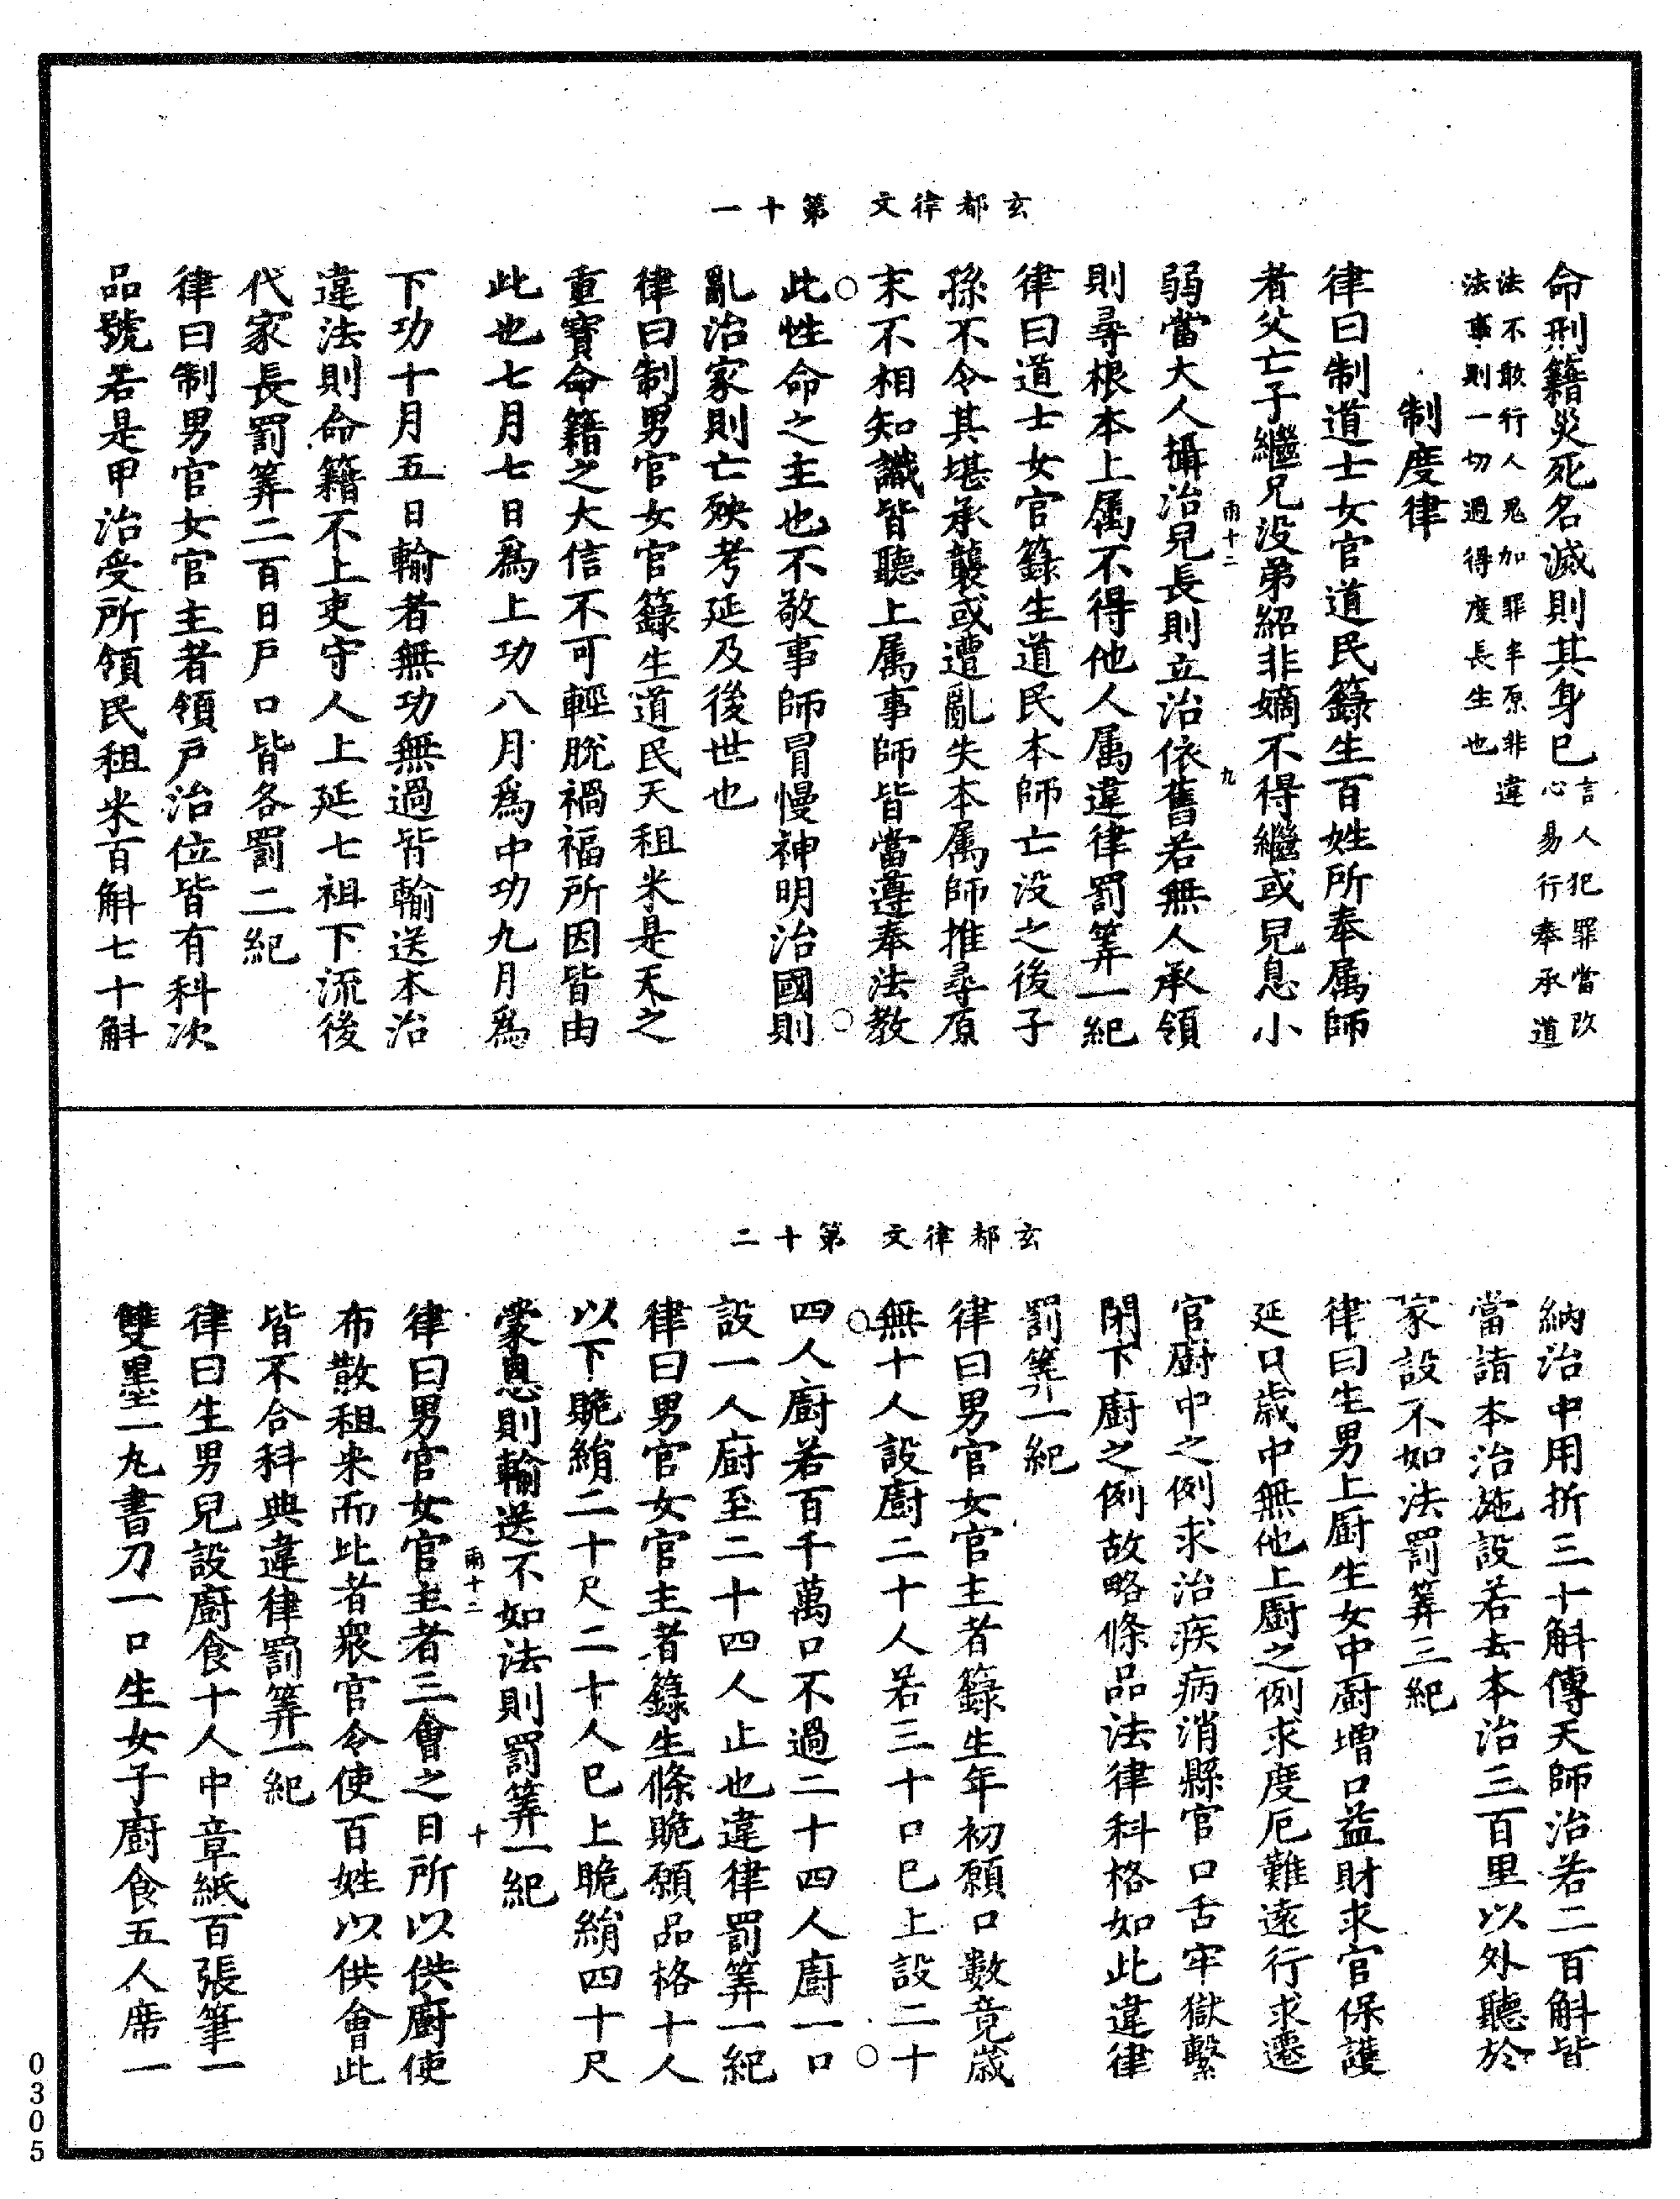 玄都律文　第十一
命刑籍災死名滅則其身已言人犯罪當改
心易行奉承道
法不敢行人鬼加罪牢原非違
法事則一切過得度長生也
制度律
律曰制道士女官道民籙生百姓所奉属師
者父亡子繼兄没弟紹非嫡不得繼或兒息小
弱當大人攝治兒長則立治依舊若無人承領
雨十二　九
則尋根本上属不得他人属違律罰筭一紀
律曰道士女官籙生道民本師亡没之後子
孫不令其堪承襲或遭亂失本属師推尋原
末不相知識皆聽上属事師皆當遵奉法教
此性命之主也不敬事師冒慢神明治國則
亂治家則亡殃考延及後世也
律曰制男官女官籙生道民天租米是天之
重寶命籍之大信不可輕脫禍福所因皆由
此也七月七日爲上功八月爲中功九月爲
下功十月五日輸者無功無過皆輸送本治
違法則命籍不上吏守人上延七祖下流後
代家長罰筭二百日戶口皆各罰二紀
律曰制男官女官主者領戶治位皆有科次
品號若是甲治受所領民租米百斛七十斛
玄都律文　第十二
納治中用折三十斛傳天師治若二百斛皆
當詣本治施設若去本治三百里以外聽於
家設不如法罰筭三紀
律曰生男上廚生女中廚增口益財求官保護
延口歲中無他上廚之例求度厄難遠行求遷
官廚中之例求治疾病消縣官口舌牢獄繫
閉下廚之例故略條品法律科格如此違律
罰筭一紀
律曰男官女官主者籙生年初願口數竟歲
無十人設廚二十人若三十口已上設二十
四人廚若百千萬口不過二十四人廚一口
設一人廚至二十四人止也違律罰筭一紀
律曰男官女官主者籙生條脆願品格十人
以下脆絹二十尺二十人已上脆絹四十尺
蒙恩則輸送不如法則罰筭一紀
雨十二　十
律曰男官女官主者三會之日所以供廚使
布散租米而比者衆官令使百姓以供會此
皆不合科典違律罰筭一紀
律曰生男兒設廚食十人中章紙百張筆一
雙墨一丸書刀一口生女子廚食五人席一
0305